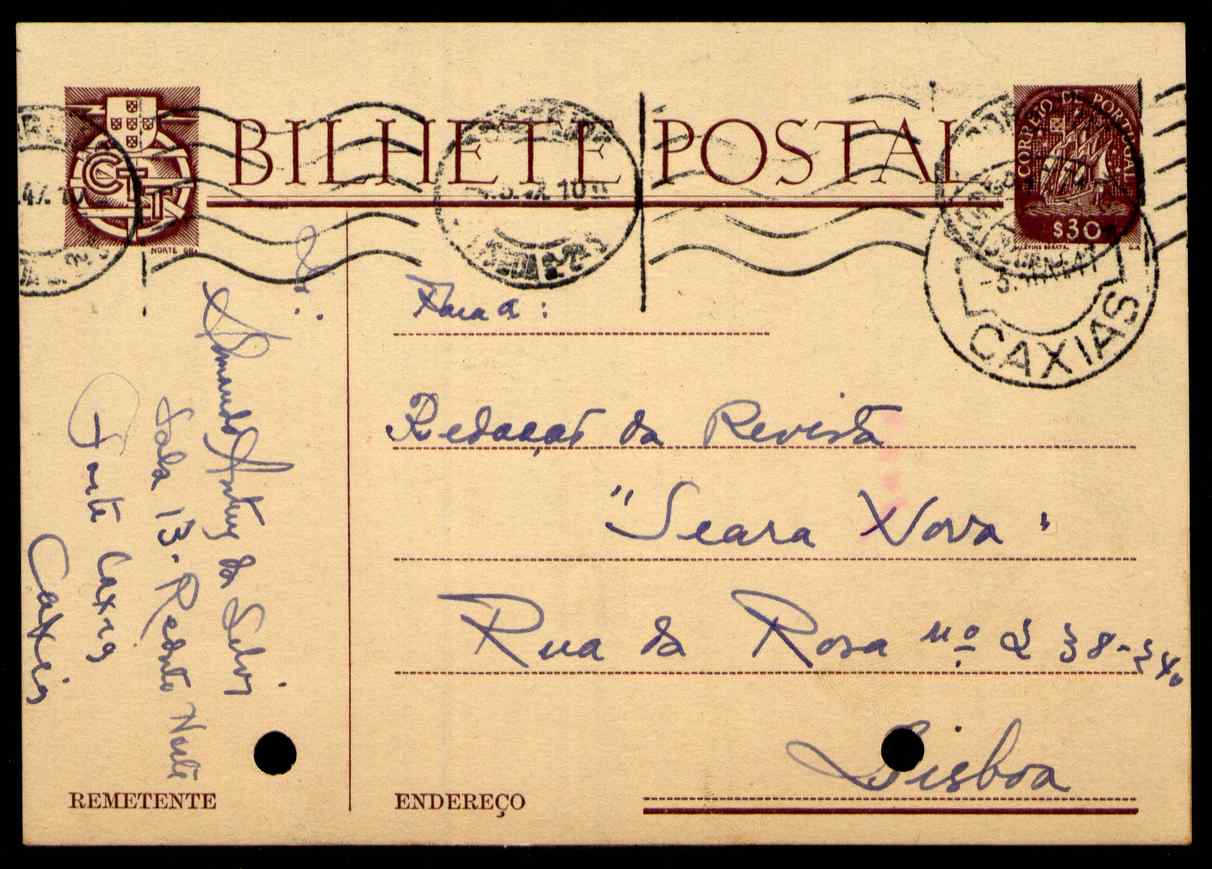 BILHETE POSTAL
CTT
CORREIO DE PORTUGAL
$30
CAXIAS
De:
Armando Antunes da Silva
Sala 13 - Reduto Norte
Forte Caxias
Caxias
Para:
Redacção da Revista
"Seara Nova"
Rua da Rosa nº
Lisboa
REMETENTE
ENDEREÇO